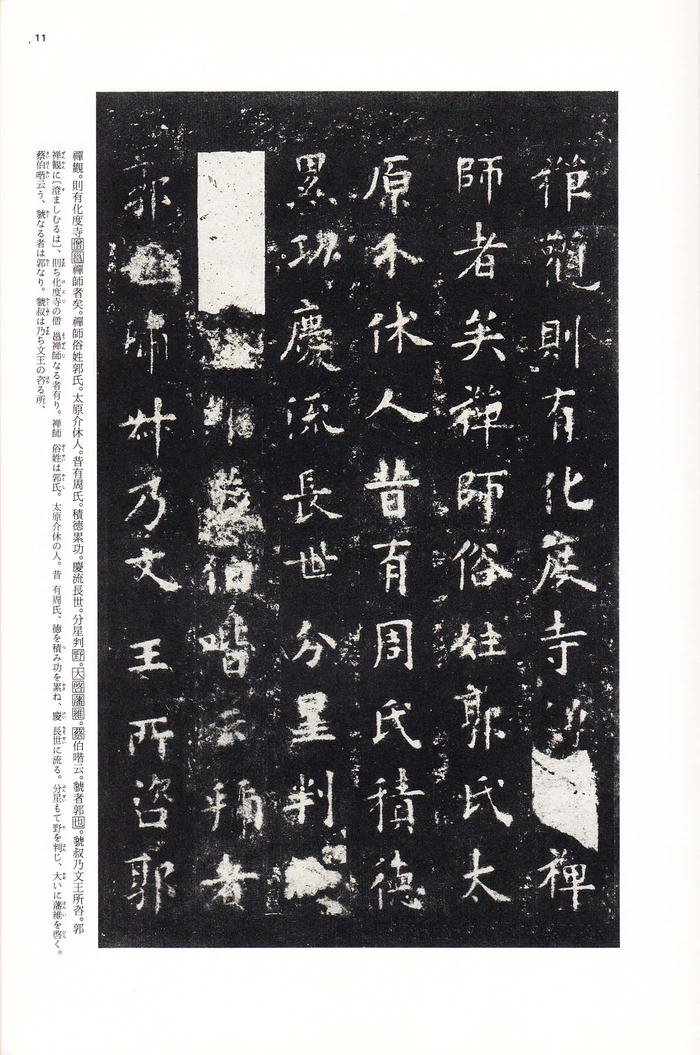 11
禪觀則有化度寺僧禪
師者矣禪師俗姓郭氏太
原介休人昔有周氏積德
累功慶流長世分星判
維蔡伯喈云虢者
郭也虢叔乃文王所咨郭
禪觀。則有化度寺僧邕禪師者矣。禪師俗姓郭氏。太原介休人。昔有周氏。積德累功。慶流長世。分星判野。大啓藩維。蔡伯喈云。虢者郭也。虢叔乃文王所咨。郭
禅観に〔澄ましむるは〕、則ち化度寺の僧 邕禅師なる者有り。禅師 俗姓は郭氏。太原介休の人。昔 有周氏、徳を積み功を累ね、慶 長世に流る。分星もて野を判じ、大いに藩維を啓く。
蔡伯喈云う、虢なる者は郭なり。虢叔は乃ち文王の咨る所、